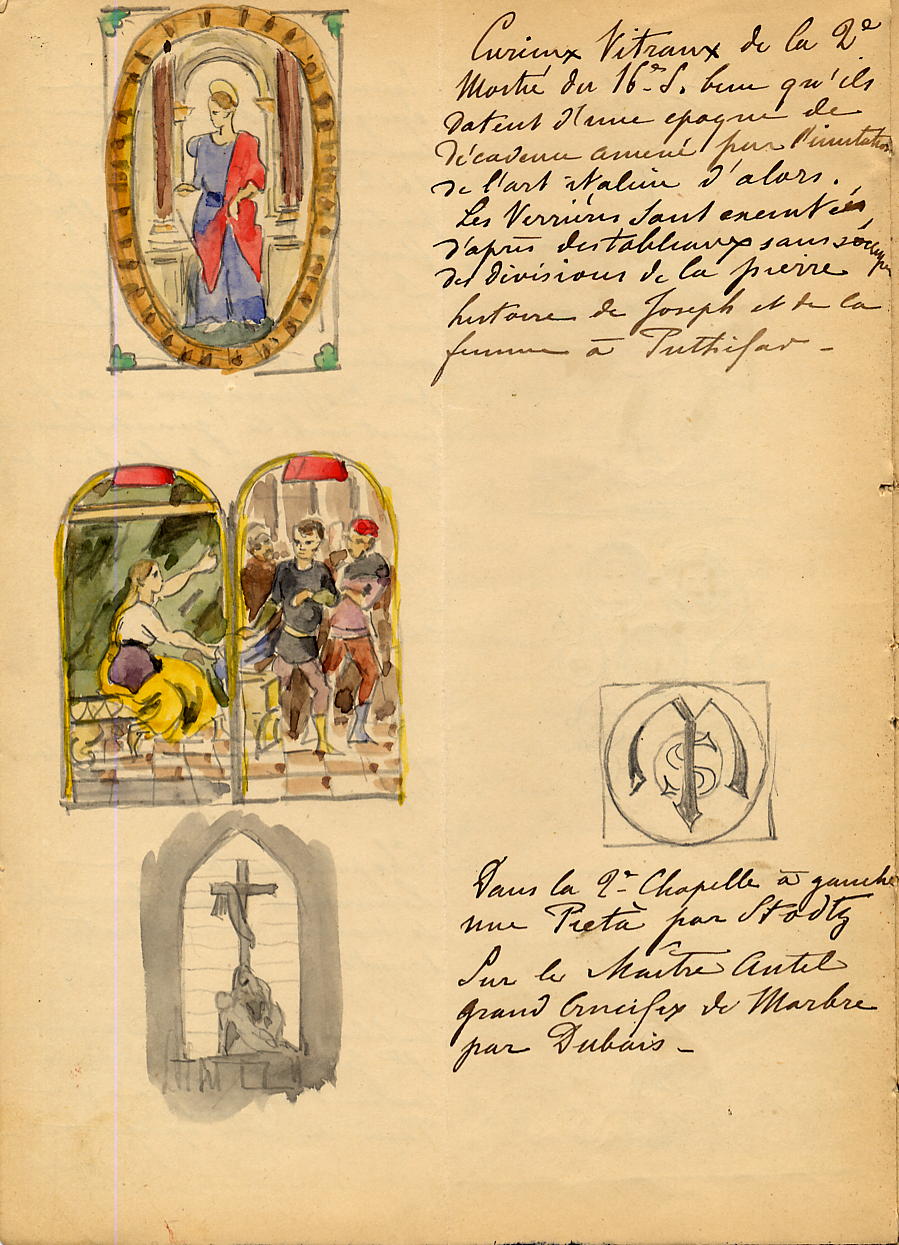 Curieux Vitraux de la 2e
Moitié du 16e S. bien qu'ils
datent d'une epoque de
décadence amené par l'imitation
de l'art italien d'alors.
Les Verrières sont executées
d'après des tableaux sans
des divisions de la pierre
histoire de Joseph et de la
femme à Puthifar -
MS
Dans la 2e Chapelle à gauche
une Pietà par Stodtz
Sur le Maître Autel
grand Crucifix de Marbre
par Dubois -